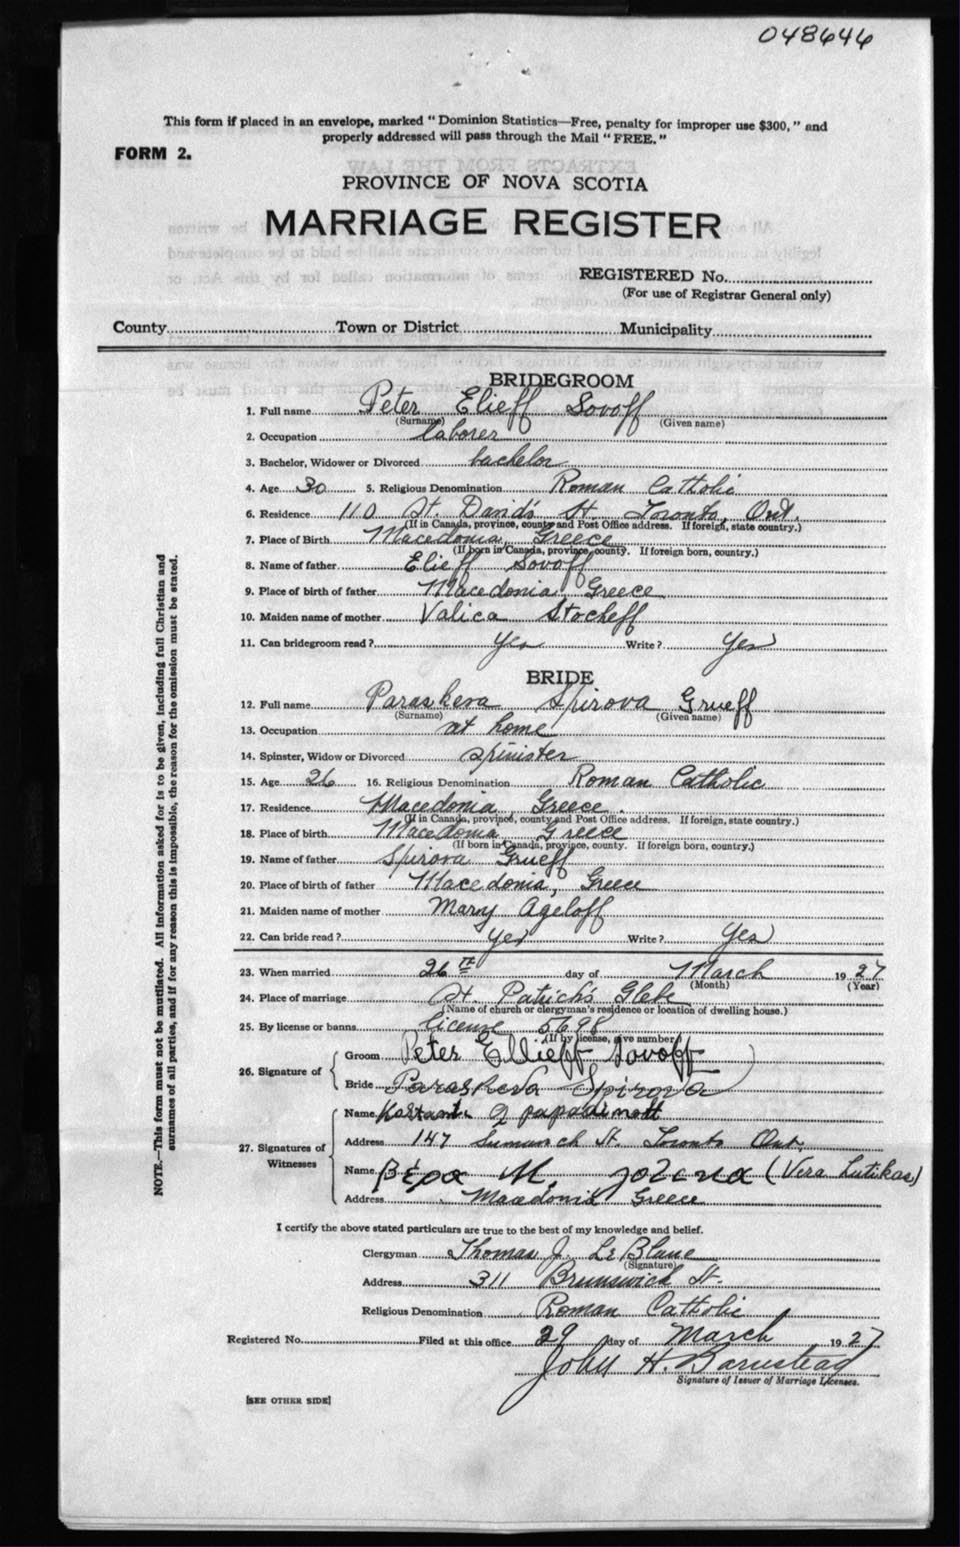 048646
This form if placed in an envelope, marked "Dominion Statistics—Free, penalty for improper use $300," and
properly addressed will pass through the Mail "FREE."
FORM 2.
PROVINCE OF NOVA SCOTIA
MARRIAGE REGISTER
REGISTERED No.
(For use of Registrar General only)
County Town or District Municipality
BRIDEGROOM
1. Full name Peter Elieff Sovoff
(Surname) (Given name)
2. Occupation laborer
3. Bachelor, Widower or Divorced bachelor
4. Age 30 5. Religious Denomination Roman Catholic
6. Residence 110 St. David's St Toronto, Ont.
(If in Canada, province, county and Post Office address. If foreign, state country.)
7. Place of Birth Macedonia Greece
(If born in Canada, province, county. If foreign born, country.)
8. Name of father Elieff Sovoff
9. Place of birth of father Macedonia, Greece
10. Maiden name of mother Valica Stocheff
11. Can bridegroom read? Yes Write? Yes
BRIDE
12. Full name Paraskeva Spirova Grueff
(Surname) (Given name)
13. Occupation at home
14. Spinster, Widow or Divorced spinister
15. Age 26 16. Religious Denomination Roman Catholic
17. Residence Macedonia Greece.
(If in Canada, province, county and Post Office address. If foreign, state country.)
18. Place of birth Macedonia Greece
(If born in Canada, province, county. If foreign born, country.)
19. Name of father Spirova Grueff
20. Place of birth of father Macedonia, Greece
21. Maiden name of mother Mary Ageloff
22. Can bride read? Yes Write? Yes
23. When married 26th day of March 1927
(Month) (Year)
24. Place of marriage St. Patrick's Glebe
(Name of church or clergyman's residence or location of dwelling house.)
25. By license or banns license 5698
(If by license, give number)
26. Signature of
Groom Peter Ellieff Sovoff
Bride Paraskeva Spirova
27. Signatures of Witnesses
Name
Address 147 St. Toronto Ont.
Name Вера М. (Vera Lutikas)
Address Macedonia Greece
I certify the above stated particulars are true to the best of my knowledge and belief.
Clergyman Thomas J. LeBlanc
(Signature)
Address 311 Brunswick St.
Religious Denomination Roman Catholic
Registered No. Filed at this office 29 day of March 1927
John H. Barnstead
Signature of Issuer of Marriage Licenses.
[SEE OTHER SIDE]
NOTE.—This form must not be mutilated. All information asked for is to be given, including full Christian and
surnames of all parties, and if for any reason this is impossible, the reason for the omission must be stated.